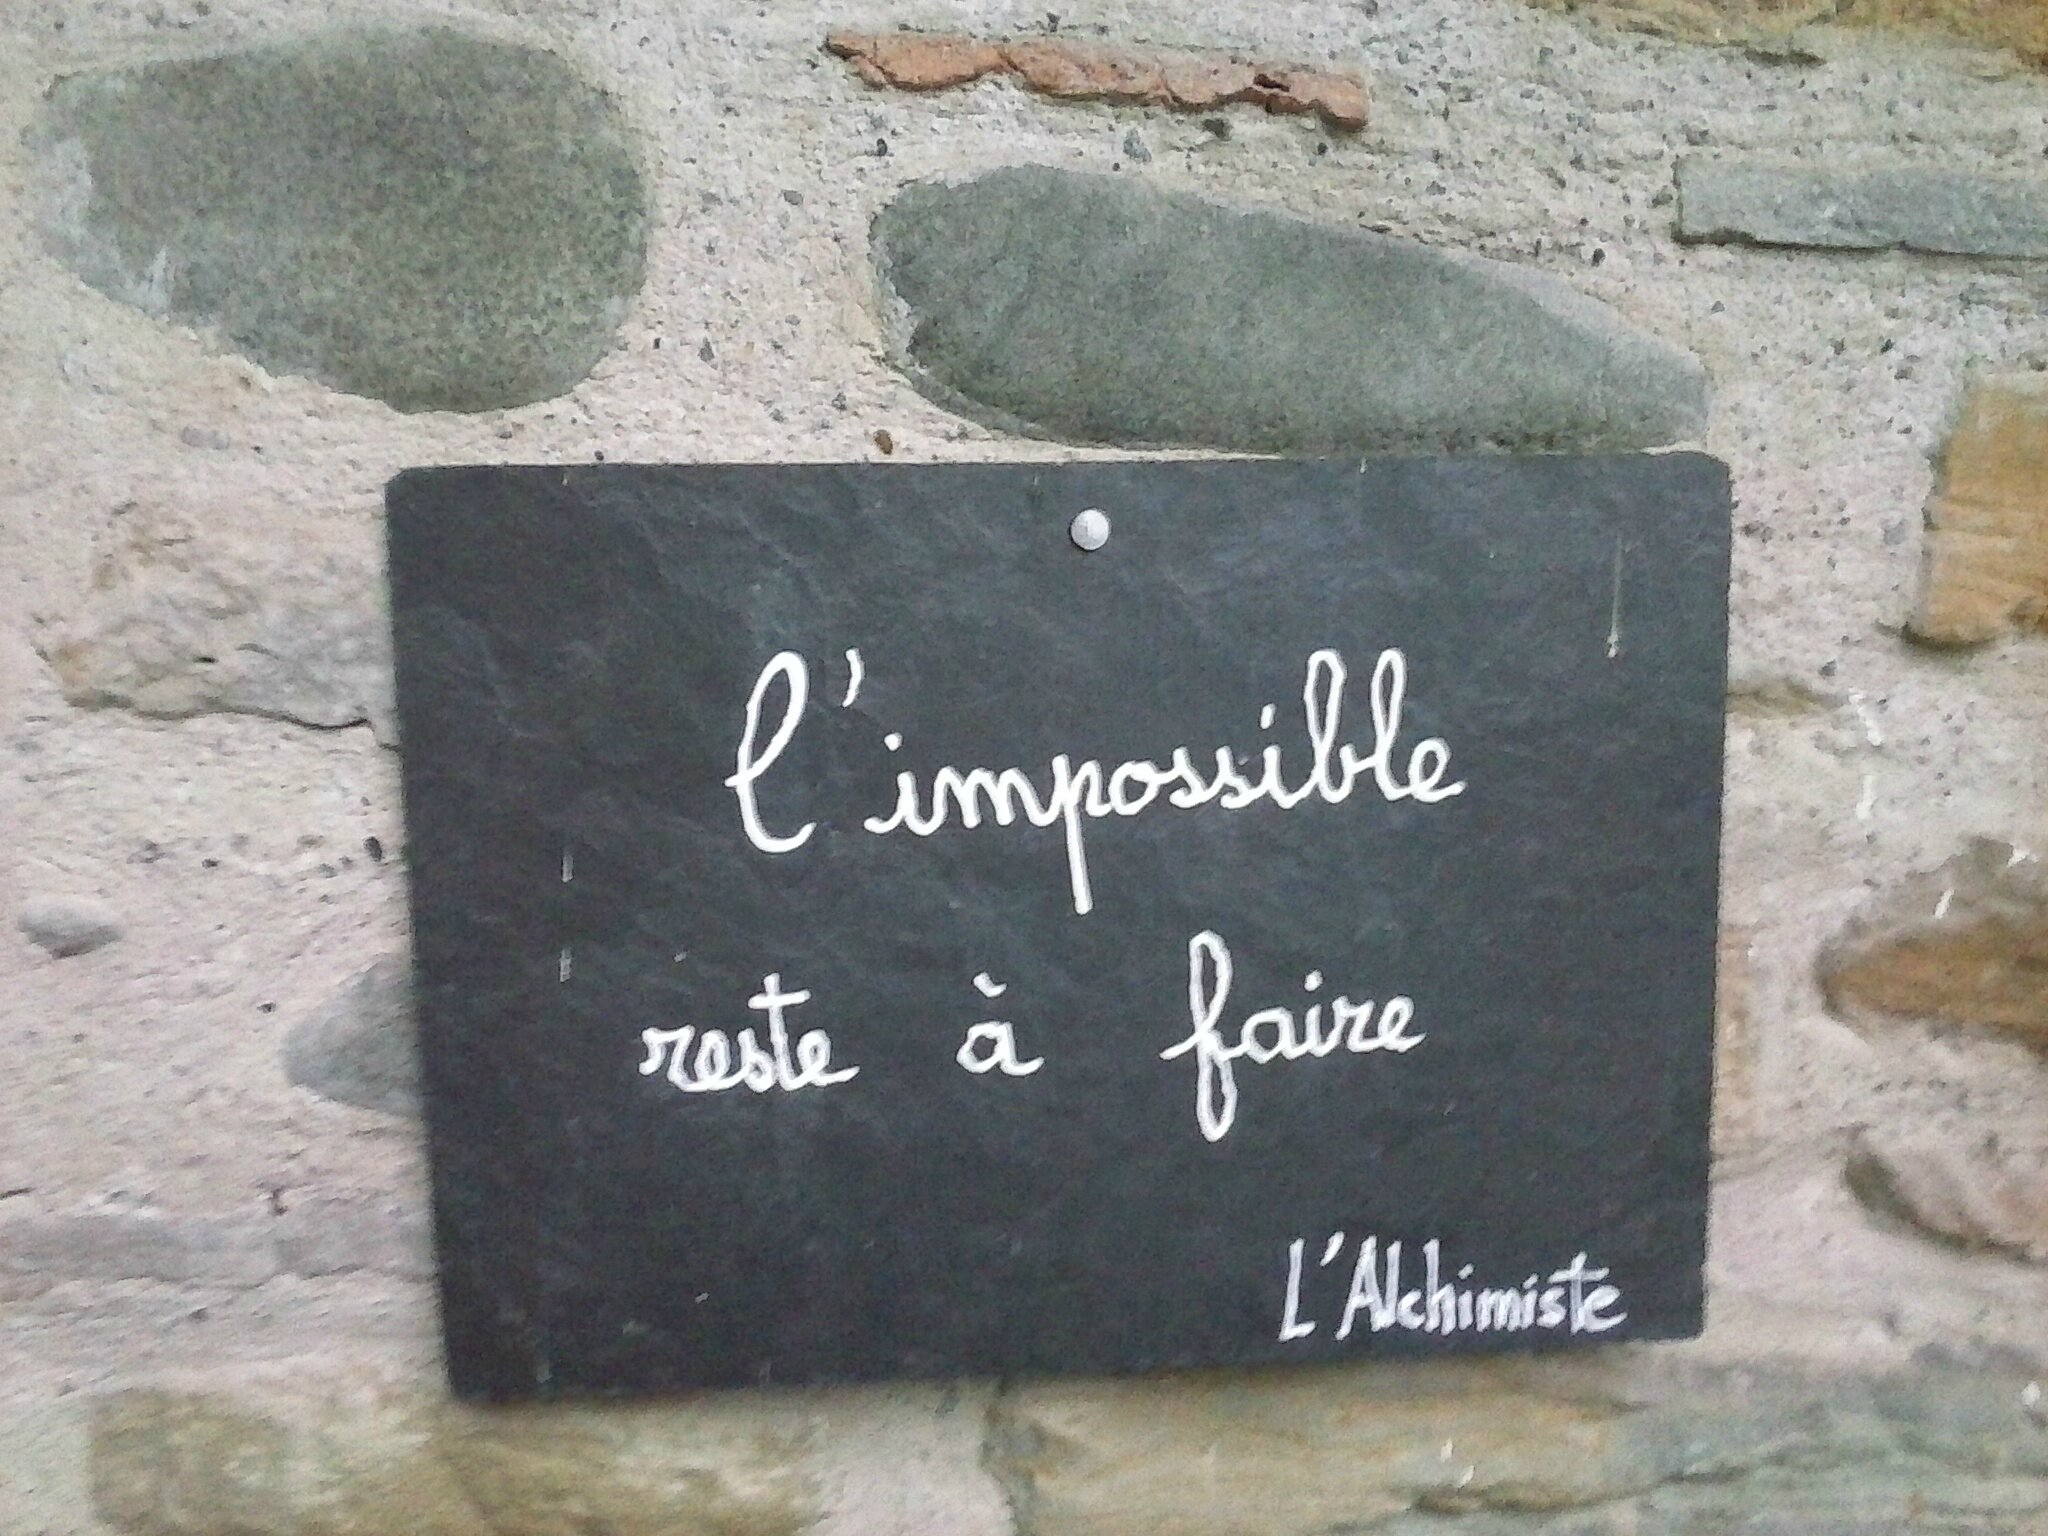 l'impossible
reste à faire
L'Alchimiste